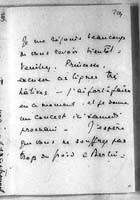 Je me réjouis beaucoup
de vous revoir bientôt.
Veuillez, Princesse,
excuser ces lignes très
hâtives — j'ai fort à faire
en ce moment, et je donne
un concert ici samedi
prochain. J'espère
que vous ne souffrez pas
trop du froid à Berlin.